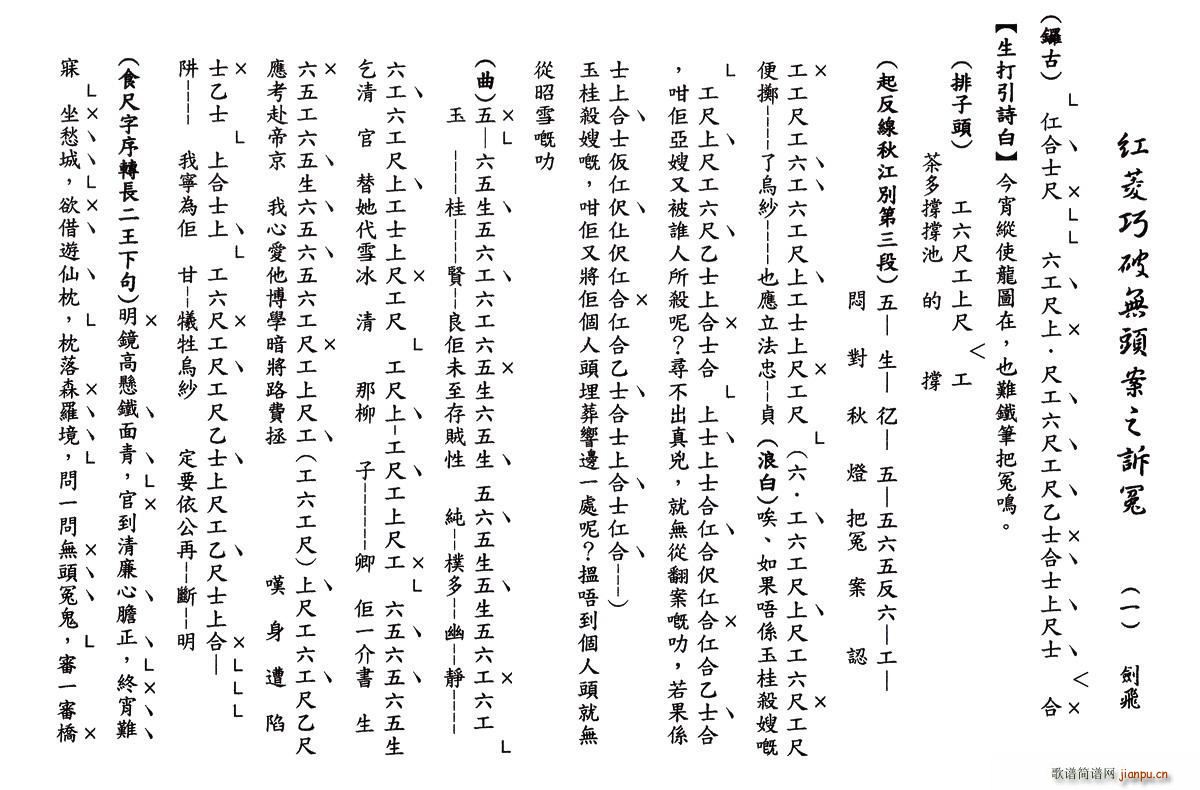 紅菱巧破無頭案之訴冤 (一) 劍飛
(鑼古) 仜合士尺 六工尺上．尺工六尺工尺乙士合士上尺士 合
【生打引詩白】今宵縱使龍圖在，也難鐵筆把冤鳴。
(排子頭) 工六尺工上尺 工
茶多撐撐池 的 撐
(起反線秋江別第三段) 五— 生— 伬— 五—五六五反六—工—
悶 對 秋 燈 把冤 案 認
工工尺工六工六工尺上工士上尺工尺 (六．工六工尺上尺工六尺工尺
便擲---了烏紗---也應立法忠--貞 (浪白)唉、如果唔係玉桂殺嫂嘅
工尺上尺工六尺乙士上合士合 上士上士合仜合伬仜合仜合乙士合
，咁佢亞嫂又被誰人所殺呢？尋不出真兇，就無從翻案嘅叻，若果係
士上合士仮仜伬仩伬仜合仜合乙士合士上合士仜合---)
玉桂殺嫂嘅，咁佢又將佢個人頭埋葬響邊一處呢？搵唔到個人頭就無
從昭雪嘅叻
(曲)五—六五生五六工六工六五生六五生 五六五生五生五六工六工
玉 ----桂----賢--良佢未至存賊性 純--樸多--幽--靜----
六工六工尺上工士上尺工尺 工尺上–工尺工上尺工 六五六五六五生
乞清 官 替她代雪冰 清 那柳 子-------卿 佢一介書 生
六五工六五生六五六五工尺工上尺工 (工六工尺)上尺工六工尺乙尺
應考赴帝京 我心愛他博學暗將路費拯 嘆 身 遭 陷
士乙士 上合士上 工六尺工尺工尺乙士上尺工乙尺士上合—
阱---- 我寧為佢 甘--犧牲烏紗 定要依公再--斷--明
(食尺字序轉長二王下句)明鏡高懸鐵面青，官到清廉心膽正，終宵難
寐 坐愁城，欲借遊仙枕，枕落森羅境，問一問無頭冤鬼，審一審橋
歌谱简谱网 jianpu.cn